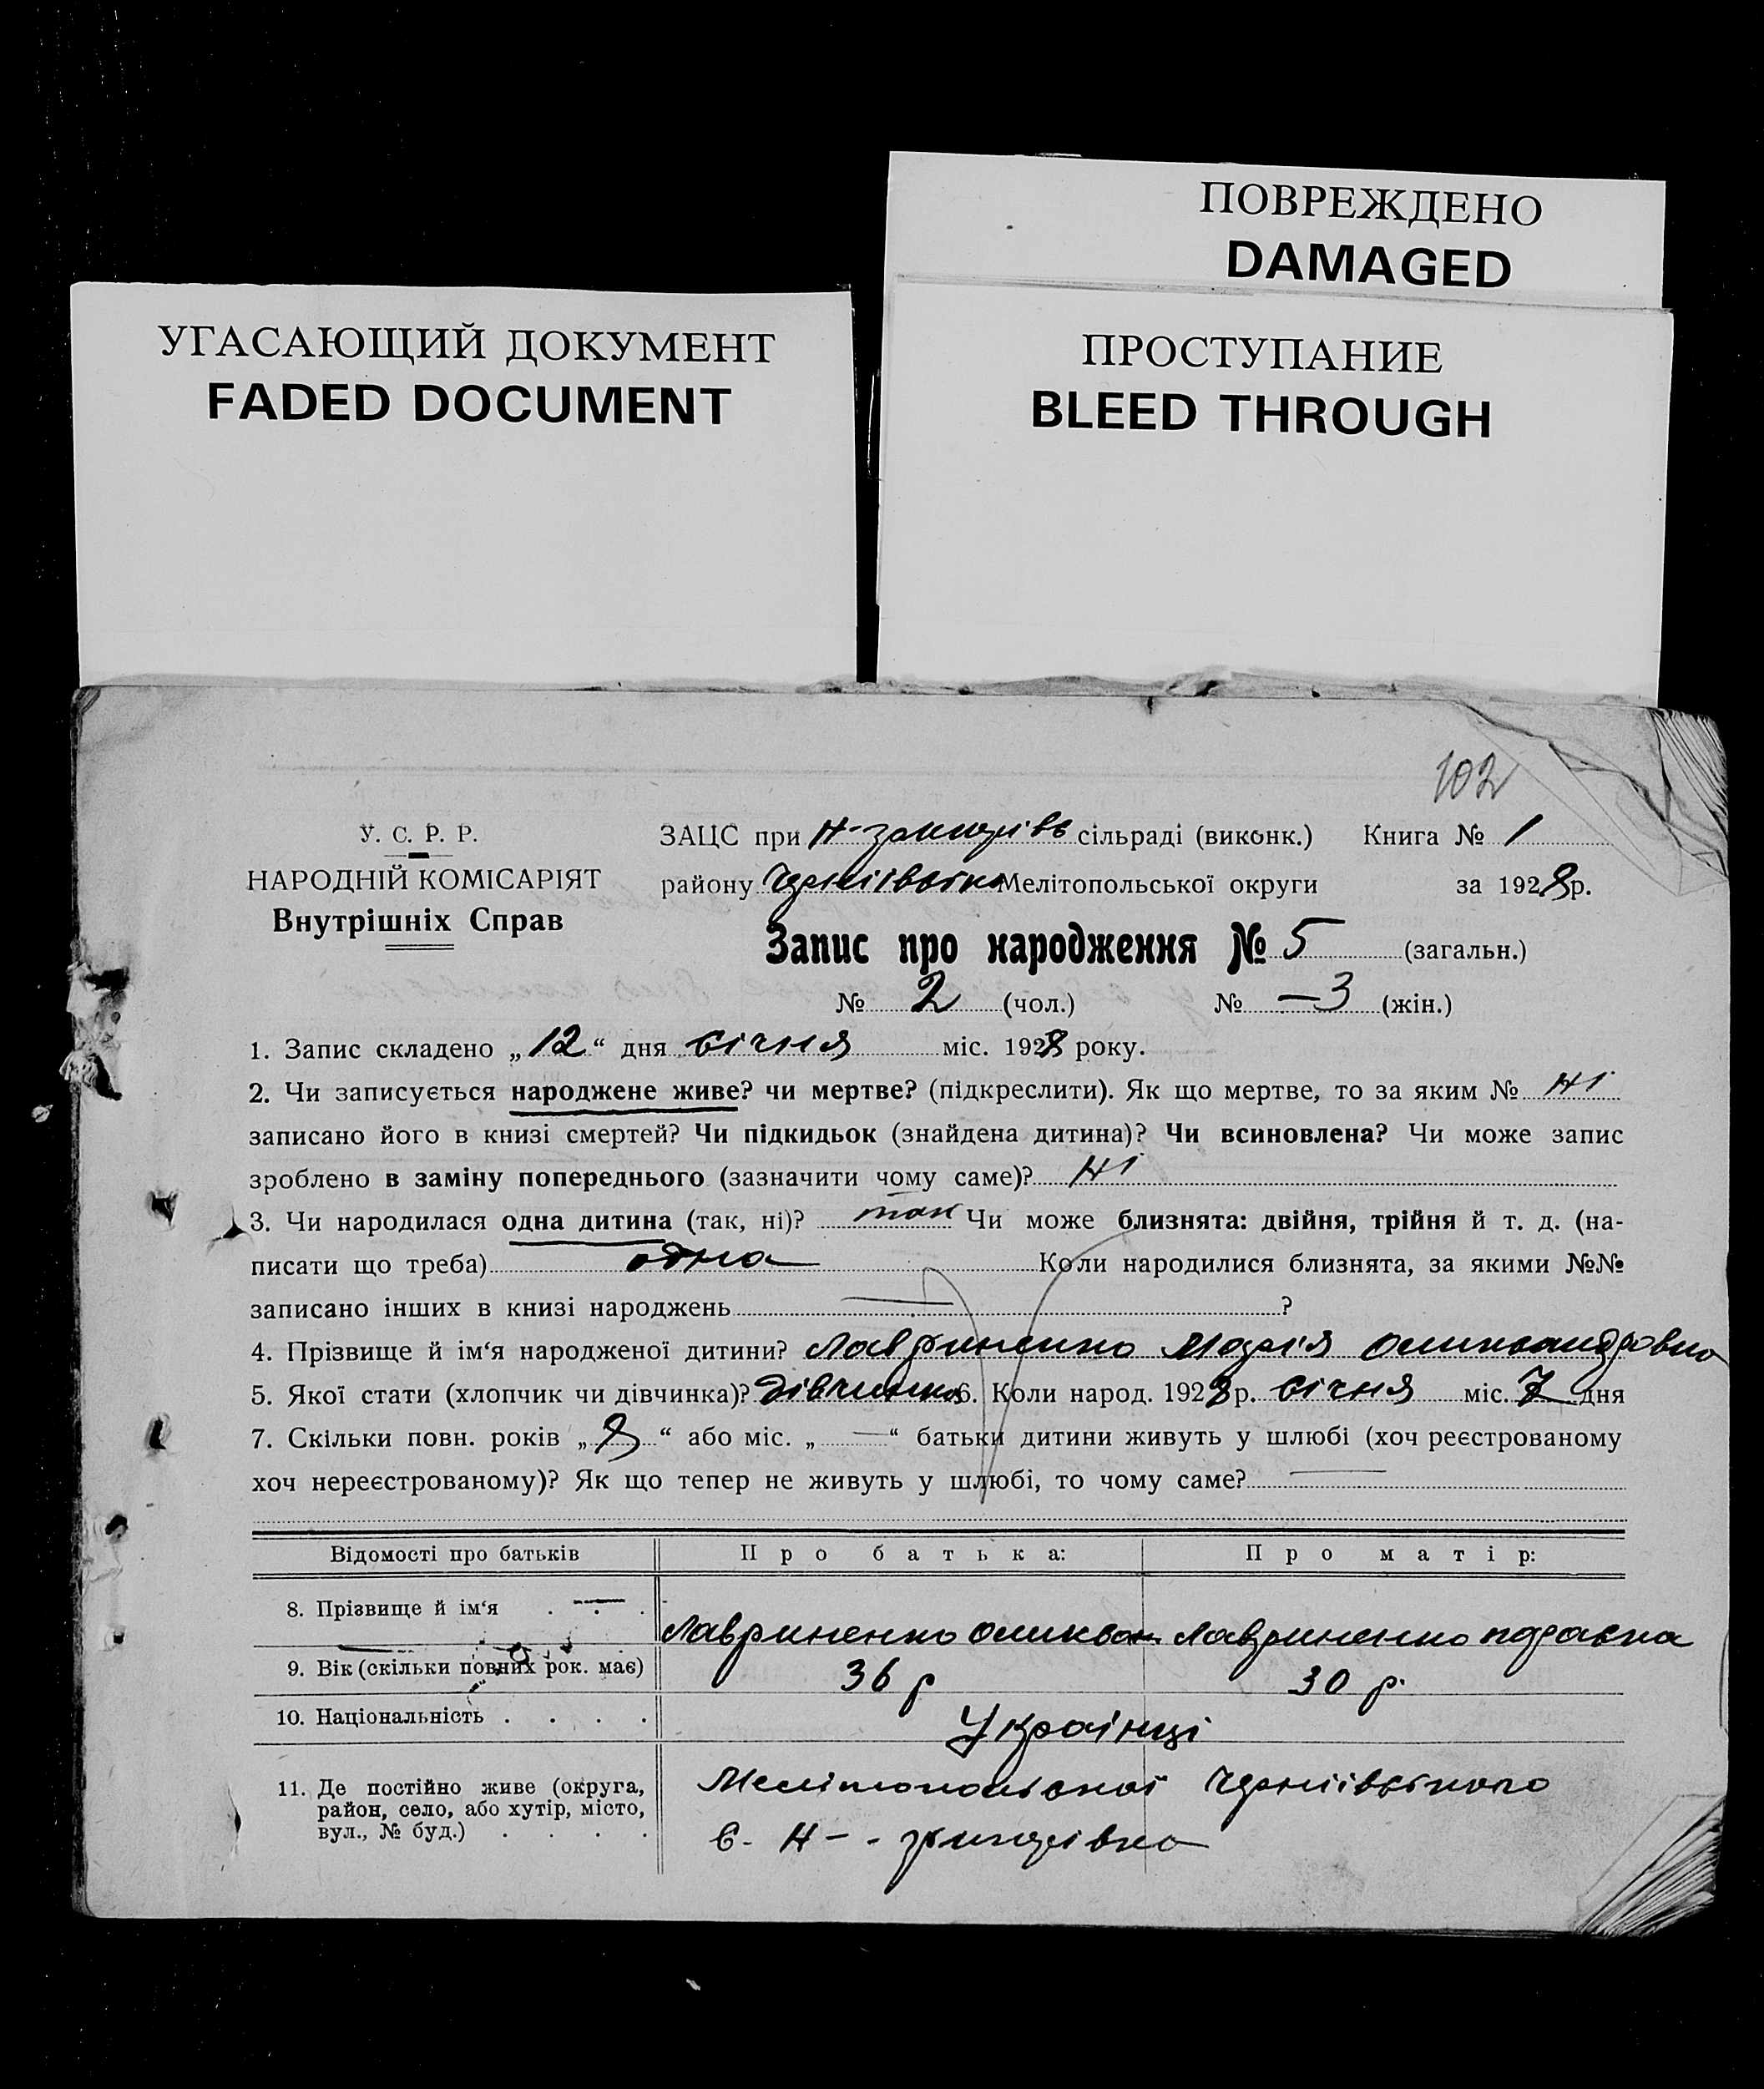 ПОВРЕЖДЕНО
DAMAGED
УГАСАЮЩИЙ ДОКУМЕНТ
FADED DOCUMENT
ПРОСТУПАНИЕ
BLEED THROUGH
102
У. С. Р. Р.
НАРОДНІЙ КОМІСАРІЯТ
Внутрішніх Справ
ЗАЦС при сільраді (виконк.) Книга № 1
району Мелітопольської округи за 1928 р.
Запис про народження № 5 (загальн.)
№ 2 (чол.) № —3 (жін.)
1. Запис складено „12“ дня січня міс. 1928 року.
2. Чи записується народжене живе? чи мертве? (підкреслити). Як що мертве, то за яким № ні
записано його в книзі смертей? Чи підкидьок (знайдена дитина)? Чи всиновлена? Чи може запис
зроблено в заміну попереднього (зазначити чому саме)? ні
3. Чи народилася одна дитина (так, ні)? так Чи може близнята: двійня, трійня й т. д. (на-
писати що треба) одна Коли народилися близнята, за якими №№
записано інших в книзі народжень — ?
4. Прізвище й ім‘я народженої дитини? Лавриненко Марія
5. Якої стати (хлопчик чи дівчинка)? дівчинка 6. Коли народ. 1928 р. січня міс. 7 дня
7. Скільки повн. років „8“ або міс. „—“ батьки дитини живуть у шлюбі (хоч реєстрованому
хоч нереєстрованому)? Як що тепер не живуть у шлюбі, то чому саме? —
Відомості про батьків Про батька: Про матір:
8. Прізвище й ім‘я . . . Лавриненко Лавриненко
9. Вік (скільки повних рок. має) 36 р 30 р.
10. Національність . . . . Українці
11. Де постійно живе (округа,
район, село, або хутір, місто,
вул., № буд.) . . . .
Мелітопольської
с. Н-